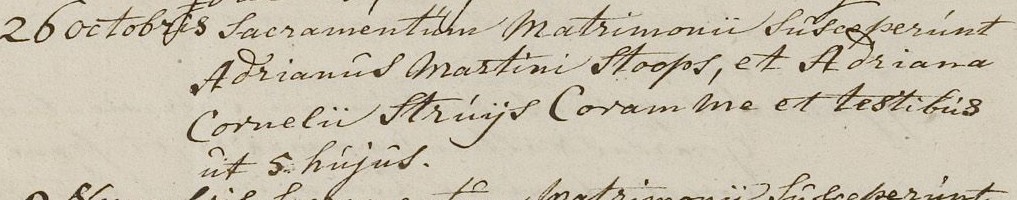 26 octobris Sacramentum Matrimonii Susceperunt
Adrianus Martini Stoops, et Adriana
Cornelii Struijs Coram me et testibus
ut 5 hujus.
Matrimonii Susceperunt